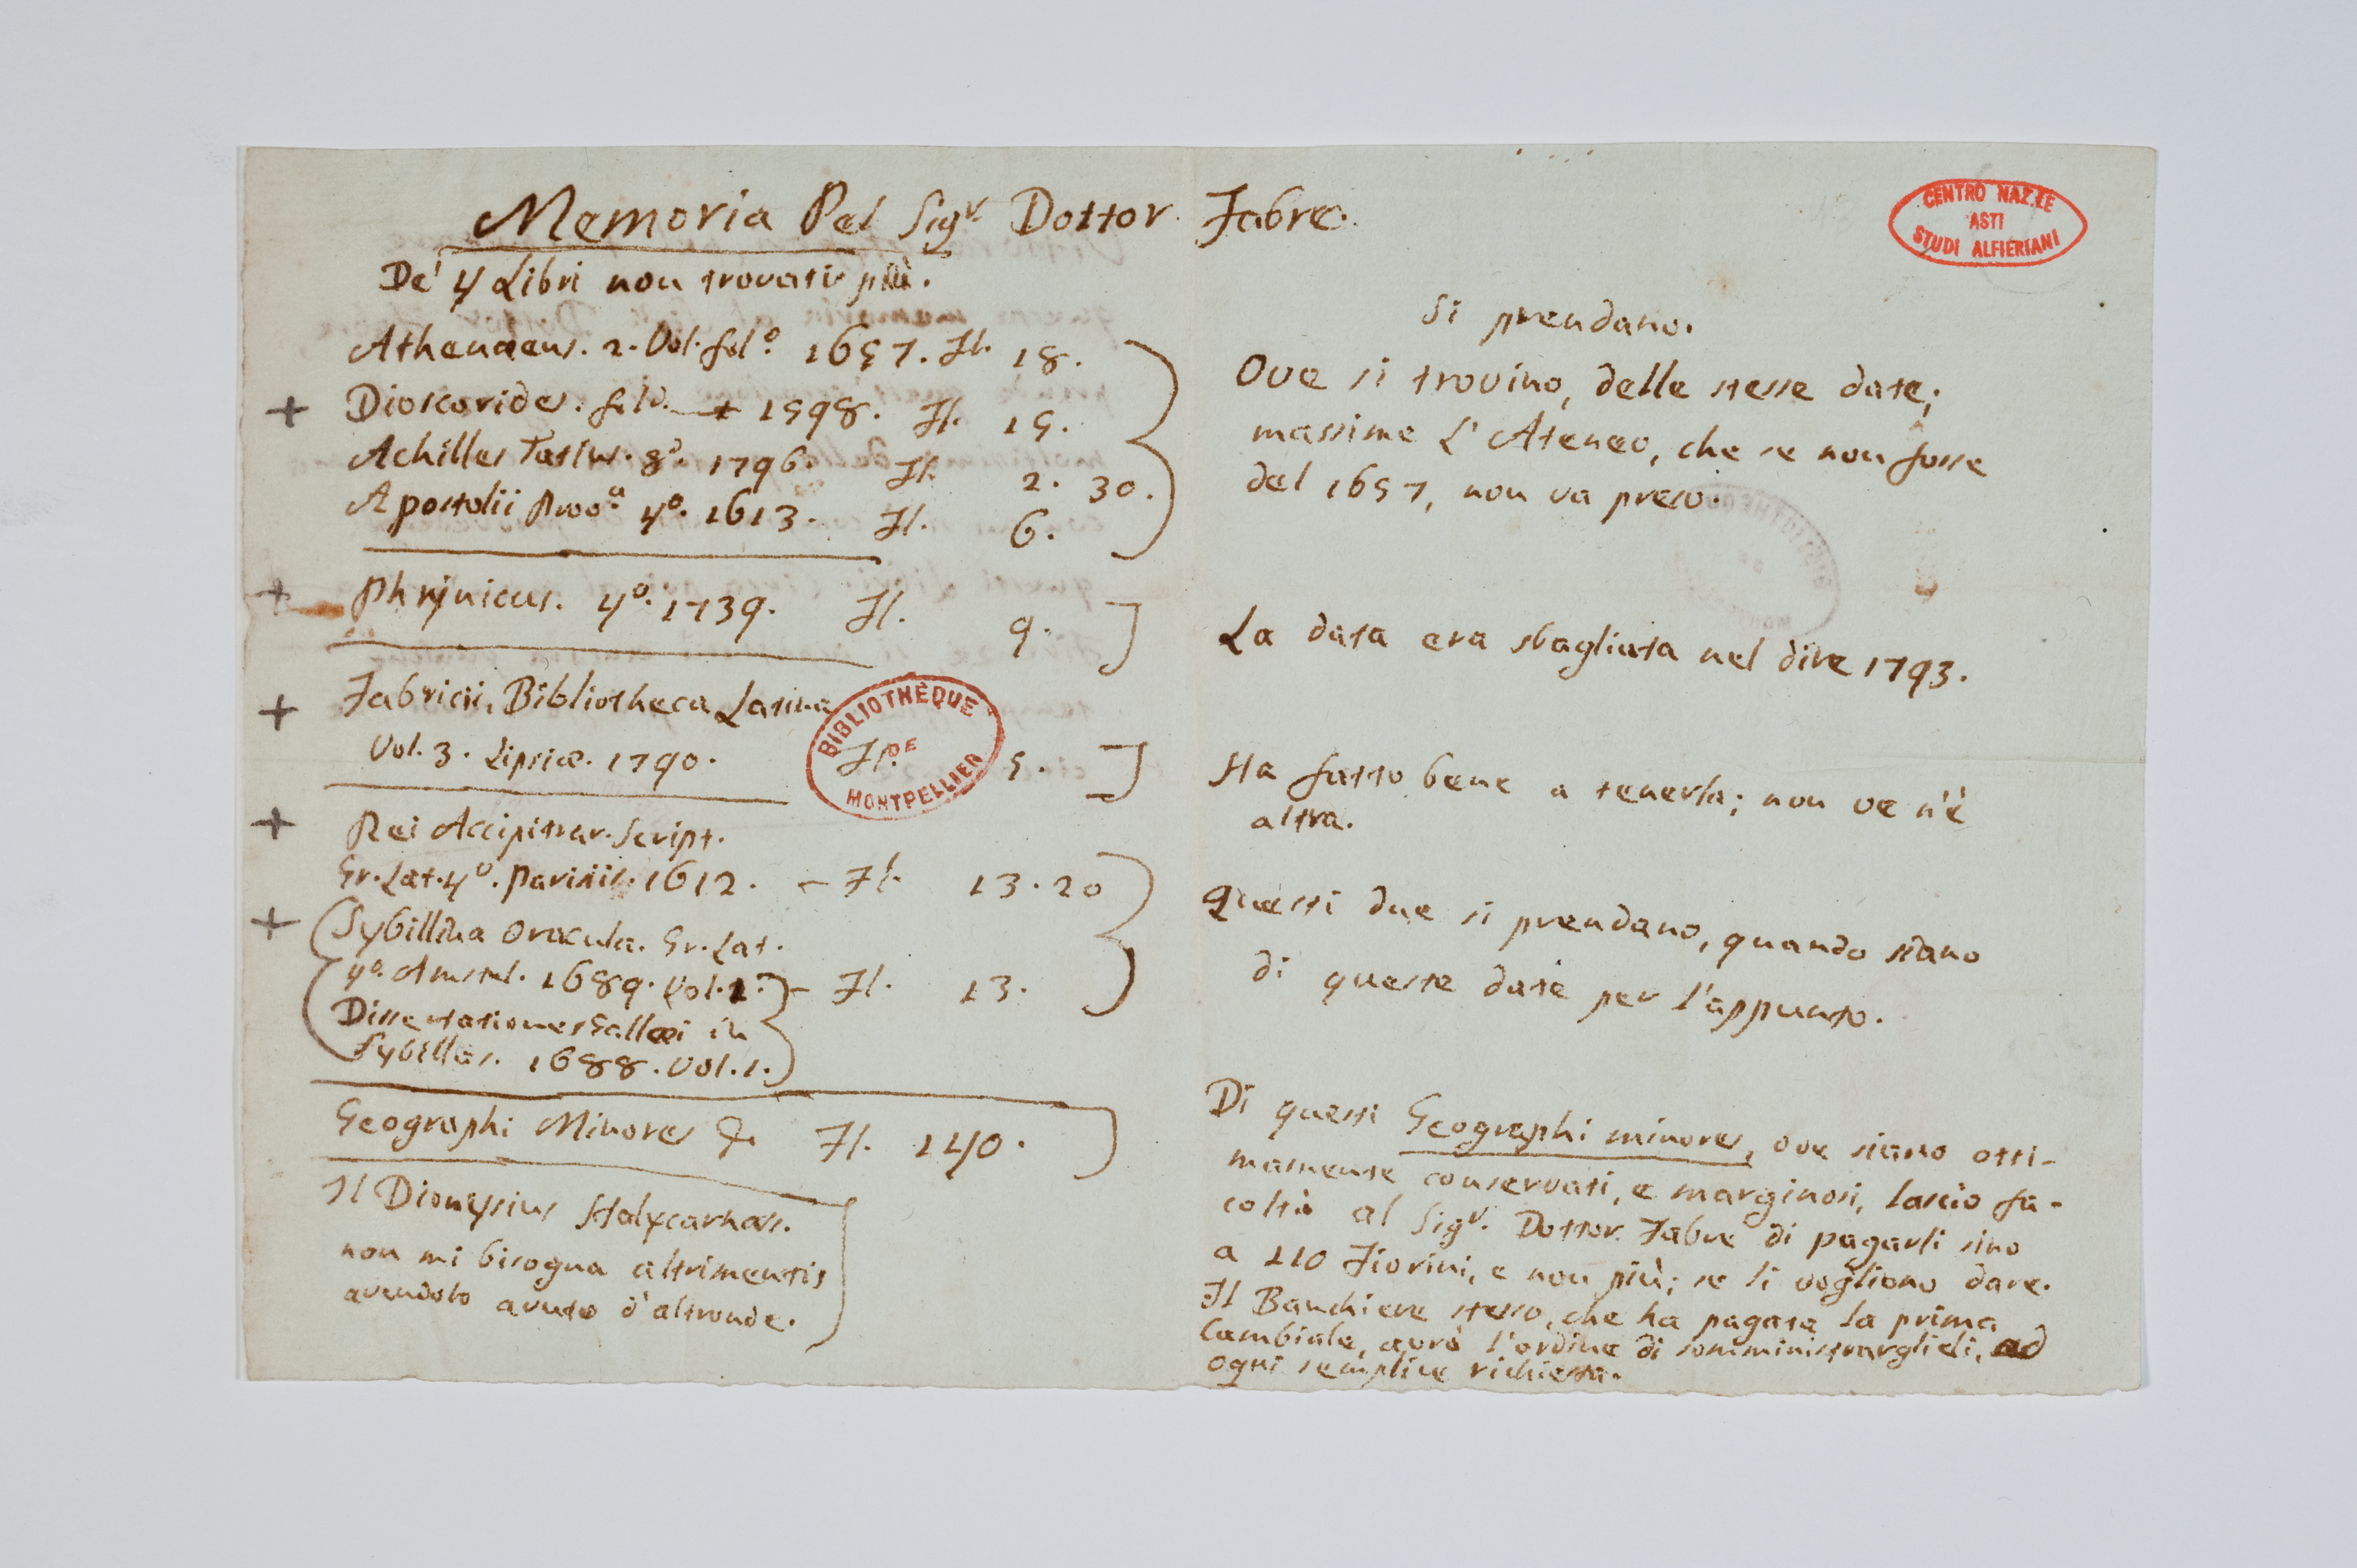 Memoria Pel Sigr. Dottor Fabre.
De' 4 Libri non trovati più.
Athenaeus. 2. Vol. folo. 1657. Fl. 18.
+ Dioscorides. folo. 1598. Fl. 15.
Achilles Tatius. 8o. 1796. Fl. 2. 30.
Apostolii Prova. 4o. 1613. Fl. 6.
Si prendano.
Ove si trovino, delle stesse date;
massime L'Ateneo, che se non fosse
del 1657, non va preso.
+ Phrijnicus. 4o. 1739. Fl. 9.
La data era sbagliata nel dire 1793.
+ Fabricii, Bibliotheca Latina
Vol. 3. Lipsiæ. 1790. Fl. 5.
Ha fatto bene a tenerla; non ve n'è
altra.
+ Rei Accipitrar. Script.
Gr. Lat. 4o. Parisiis. 1612. – Fl. 13. 20
+ Sybillina Oracula. Gr. Lat.
4o. Amstel. 1689. Vol. 1. – Fl. 13.
Dissertationes Gallæi in
Sybillas. 1688. Vol. 1.
Questi due si prendano, quando siano
di queste date per l'appunto.
Geographi Minores Fl. 140.
Il Dionysius Halycarnass.
non mi bisogna altrimenti,
avendolo avuto d'altronde.
Di questi Geographi minores, ove siano otti-
mamente conservati, e marginosi, lascio fa-
coltà al Sigr. Dottor Fabre di pagarli sino
a 110 Fiorini, e non più; se li vogliono dare.
Il Banchiere stesso, che ha pagata la prima
Cambiale, avrà l'ordine di somministrarglieli, ad
ogni semplice richiesta.
CENTRO NAZ.LE
ASTI
STUDI ALFIERIANI
BIBLIOTHÈQUE
DE
MONTPELLIER